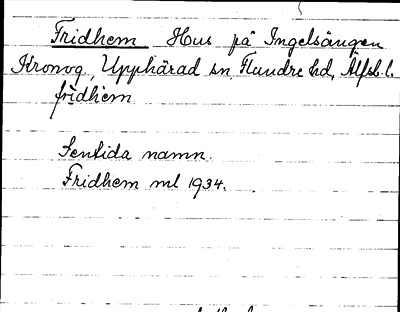 Fridhem Hus på Ingelsängen
Kronog, Upphärad sn, Flundre hd, Älfsb. l.
fridhem
Sentida namn.
Fridhem ml 1934.